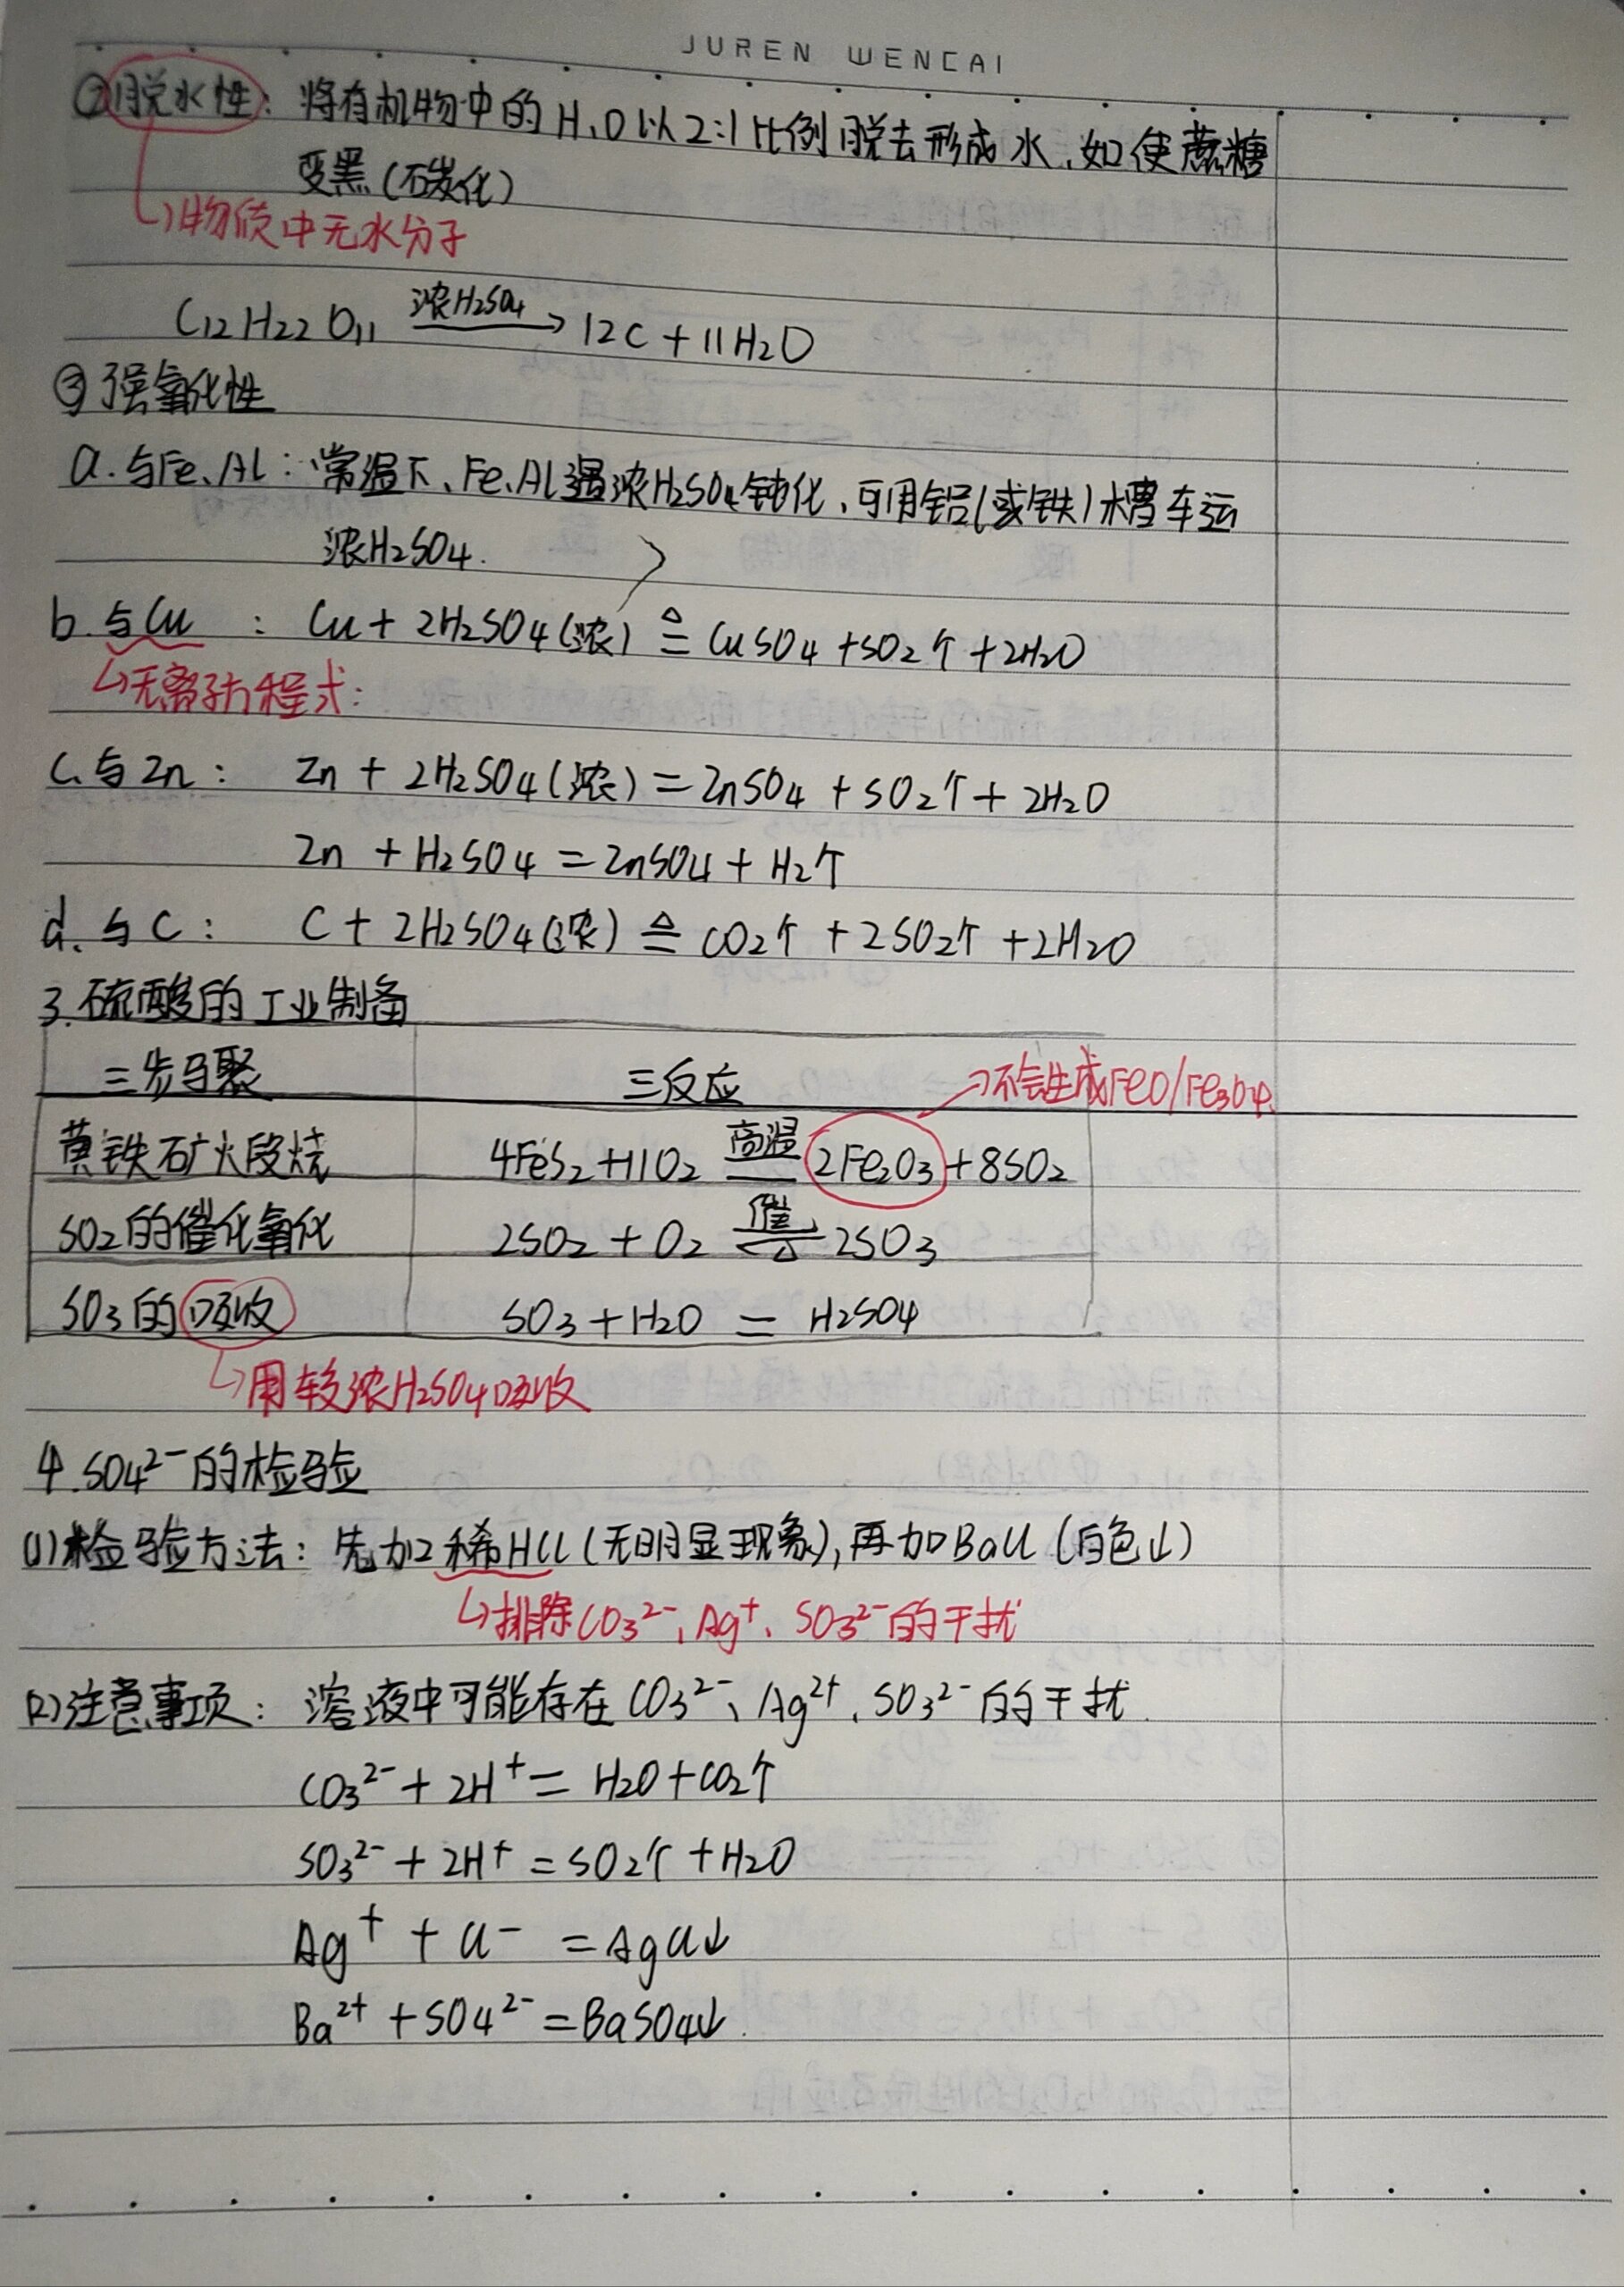 JUREN WENCAI
②脱水性：将有机物中的H、O以2:1比例脱去形成水，如使蔗糖
变黑(碳化)
↳物质中无水分子
C12H22O11 浓H2SO4→ 12C+11H2O
③强氧化性
a.与Fe、Al：常温下、Fe、Al遇浓H2SO4钝化，可用铝(或铁)槽车运
浓H2SO4.
b.与Cu：Cu+2H2SO4(浓)≜CuSO4+SO2↑+2H2O
↳无离子方程式：
c.与Zn：Zn+2H2SO4(浓)=ZnSO4+SO2↑+2H2O
Zn+H2SO4=ZnSO4+H2↑
d.与C：C+2H2SO4(浓)≜CO2↑+2SO2↑+2H2O
3.硫酸的工业制备
三步骤 三反应 →不会生成FeO/Fe3O4.
黄铁矿煅烧 4FeS2+11O2 高温= 2Fe2O3+8SO2
SO2的催化氧化 2SO2+O2 催⇌△ 2SO3
SO3的吸收 SO3+H2O=H2SO4
↳用较浓H2SO4吸收
4.SO4²⁻的检验
(1)检验方法：先加稀HCl(无明显现象)，再加BaCl(白色↓)
↳排除CO3²⁻、Ag⁺、SO3²⁻的干扰
(2)注意事项：溶液中可能存在CO3²⁻、Ag²⁺、SO3²⁻的干扰.
CO3²⁻+2H⁺=H2O+CO2↑
SO3²⁻+2H⁺=SO2↑+H2O
Ag⁺+Cl⁻=AgCl↓
Ba²⁺+SO4²⁻=BaSO4↓.